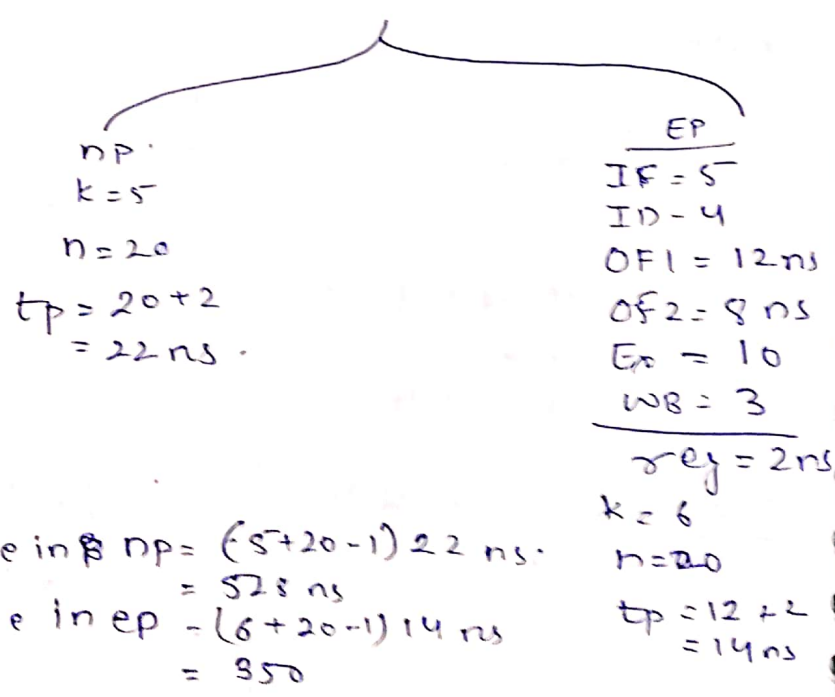 np.
k = 5
n = 20
tp = 20 + 2
= 22 ns.
EP
IF = 5
ID - 4
OF1 = 12ns
Of2 = 8 ns
= 10
WB = 3
reg = 2ns
k = 6
n = 20
tp = 12 + 2
= 14ns
e in np = (5+20-1) 22 ns.
= 528 ns
e in ep - (6+20-1) 14 ns
= 350